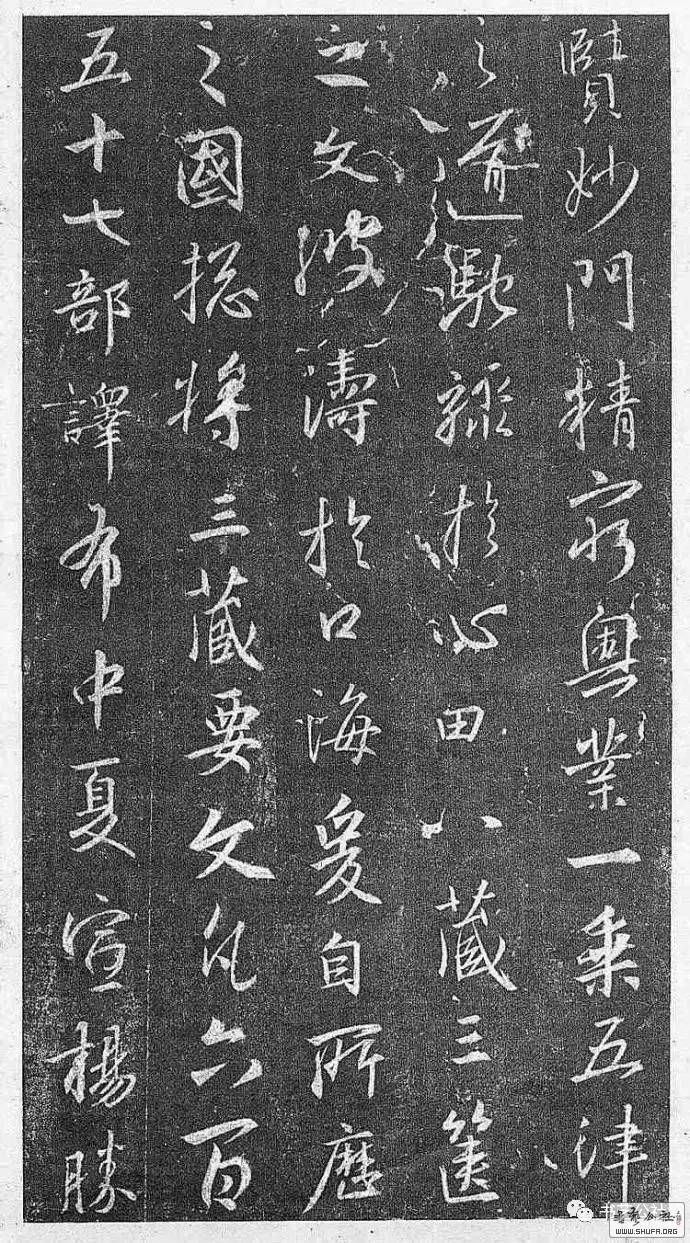 賢妙門精窮奧業一乘五律
之道馳驟於心田八藏三篋
之文波濤於口海爰自所歷
之國揔將三藏要文凡六百
五十七部譯布中夏宣楊勝
WWW.SHUFA.ORG